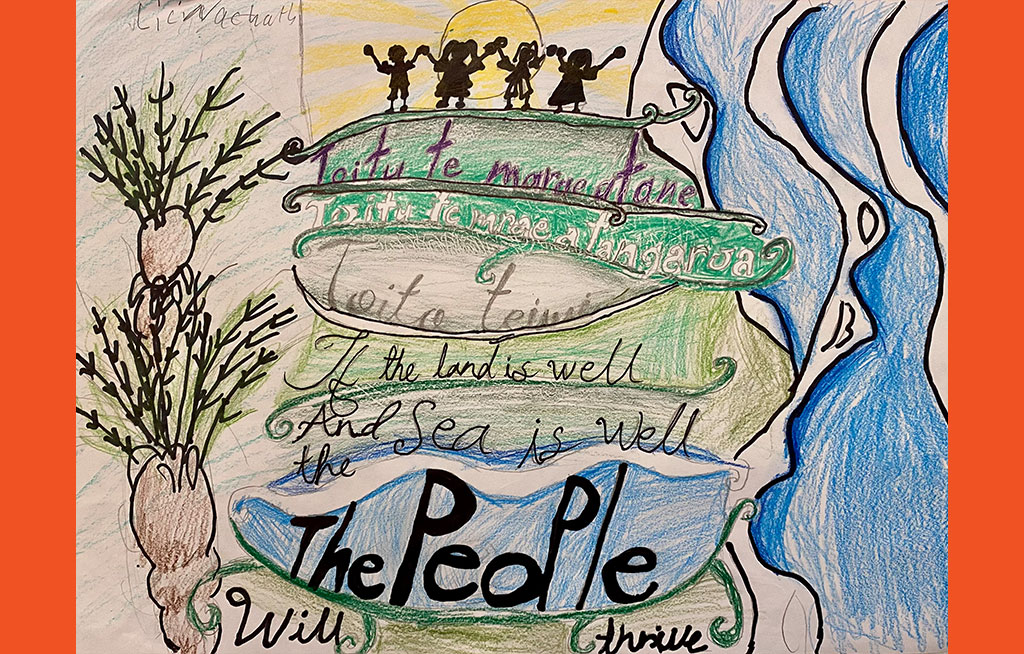 Toitu te marae atane
Toitu te mrae a tangaroa
Toitu teiwi
If the land is well
And Sea is well
the
The PeoPle
Will thrive